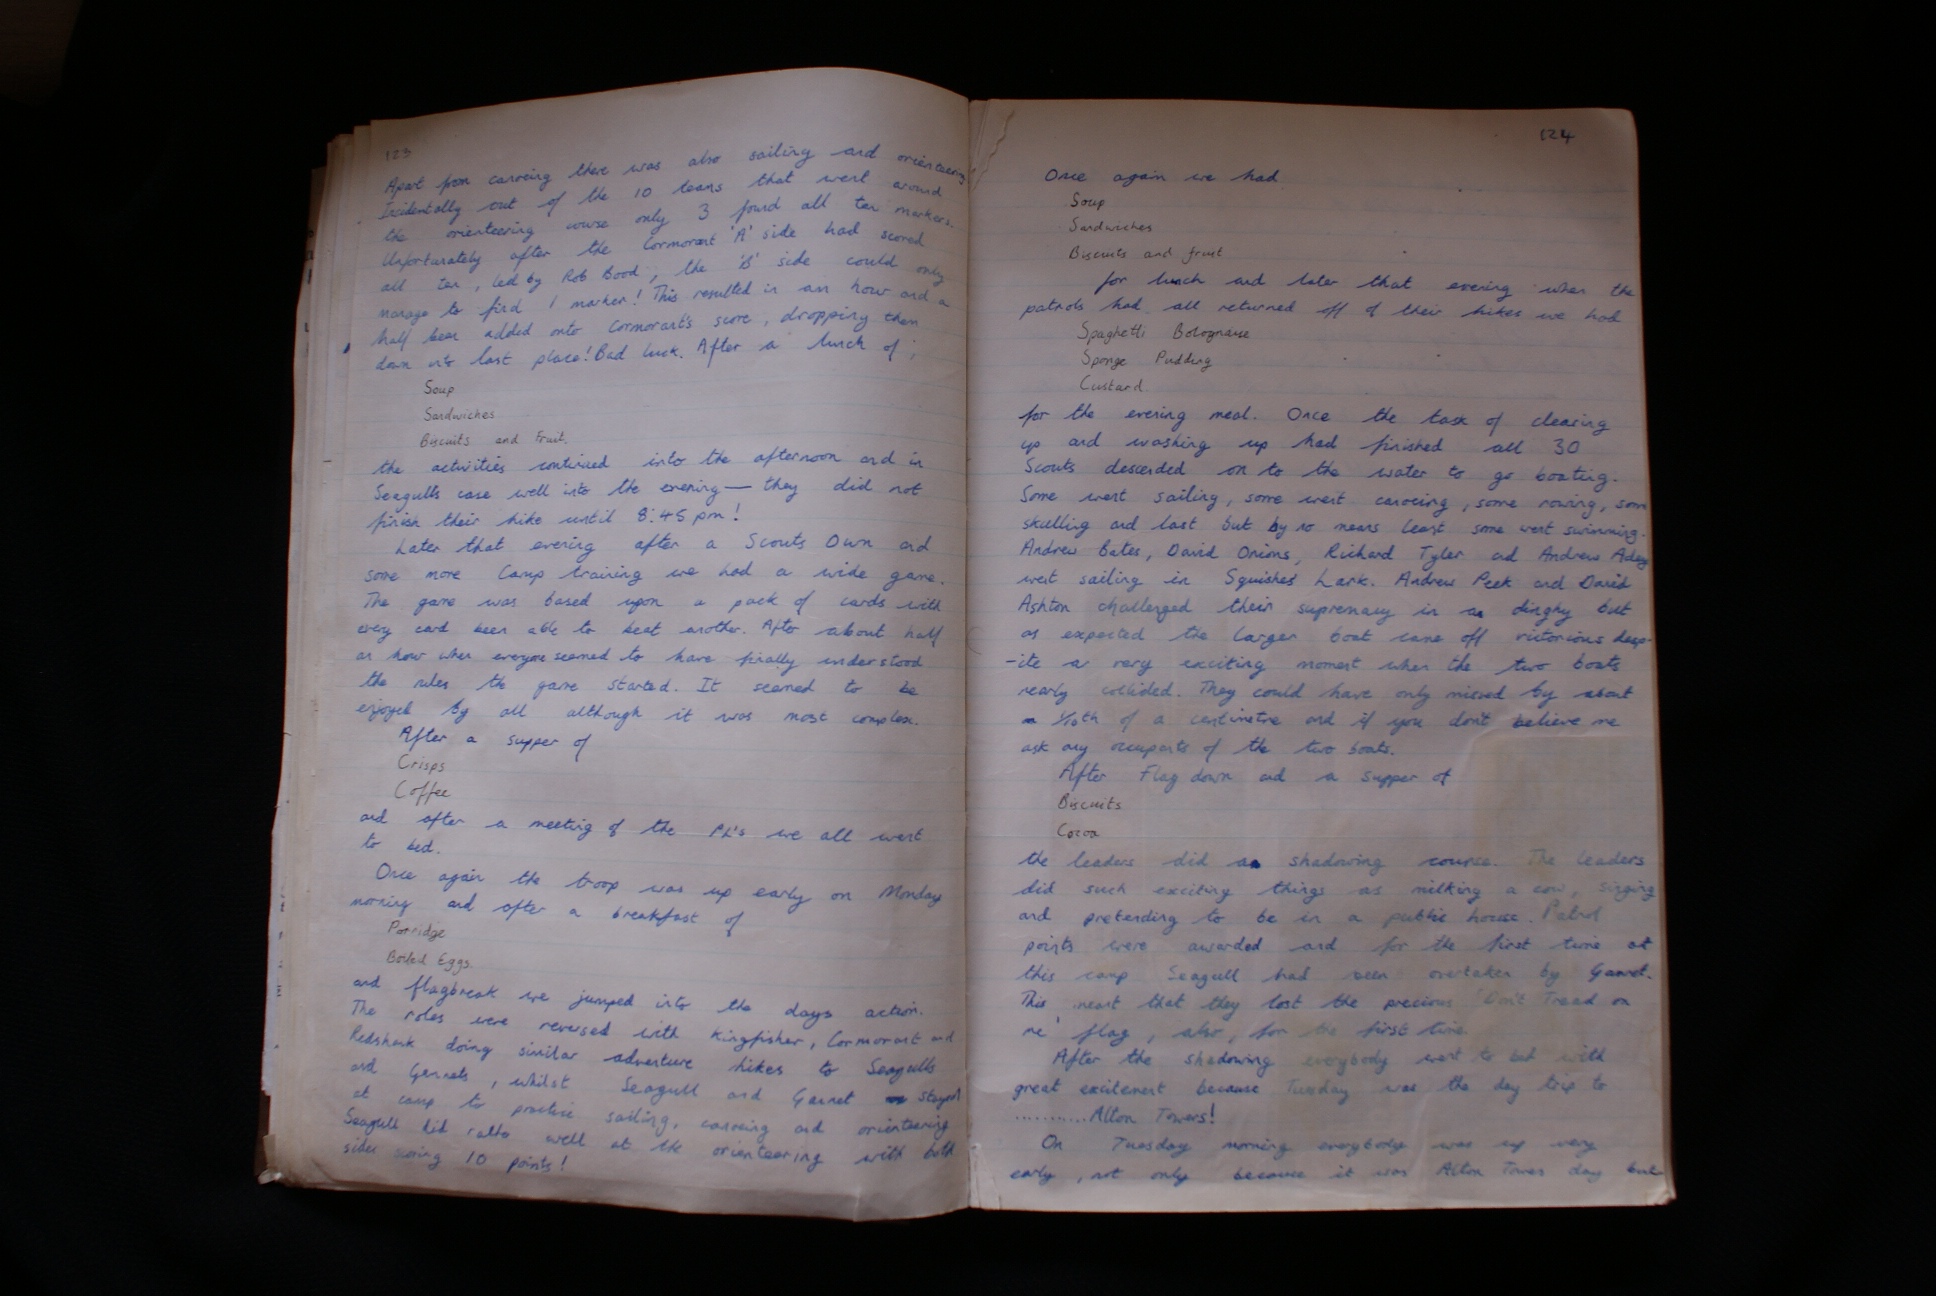 123
Apart from canoeing there was also sailing and orienteering
Incidentally out of the 10 teams that went around
the orienteering course only 3 found all ten markers.
Unfortunately after the Cormorant 'A' side had scored
all ten, led by Rob Bood, the 'B' side could only
manage to find 1 marker! This resulted in an hour and a
half been added onto Cormorant's score, dropping them
down into last place! Bad luck. After a lunch of;
Soup
Sandwiches
Biscuits and Fruit.
the activities continued into the afternoon and in
Seagulls case well into the evening — they did not
finish their hike until 8:45 pm!
Later that evening after a Scouts Own and
some more Camp training we had a wide game.
The game was based upon a pack of cards with
every card been able to beat another. After about half
an hour when everyone seemed to have finally understood
the rules the game started. It seemed to be
enjoyed by all although it was most complex.
After a supper of
Crisps
Coffee
and after a meeting of the PL's we all went
to bed.
Once again the troop was up early on Monday
morning and after a breakfast of
Porridge
Boiled Eggs.
and flagbreak we jumped into the days action.
The roles were reversed with Kingfisher, Cormorant and
Redshank doing similar adventure hikes to Seagulls
and Gannets, whilst Seagull and Gannet stayed
at camp to practise sailing, canoeing and orienteering
Seagull did rather well at the orienteering with both
sides scoring 10 points!
124
Once again we had
Soup
Sandwiches
Biscuits and fruit
for lunch and later that evening when the
patrols had all returned off of their hikes we had
Spaghetti Bolognaise
Sponge Pudding
Custard.
for the evening meal. Once the task of clearing
up and washing up had finished all 30
Scouts descended on to the water to go boating.
Some went sailing, some went canoeing, some rowing, some
skulling and last but by no means least some went swimming.
Andrew Bates, David Onions, Richard Tyler and Andrew Adey
went sailing in Squishes' Lark. Andrew Peek and David
Ashton challenged their supremacy in a dinghy but
as expected the larger boat came off victorious desp-
-ite a very exciting moment when the two boats
nearly collided. They could have only missed by about
1/10th of a centimetre and if you don't believe me
ask any occupants of the two boats.
After Flag down and a supper of
Biscuits
Cocoa
the leaders did a shadowing course. The leaders
did such exciting things as milking a cow, singing
and pretending to be in a public house. Patrol
points were awarded and for the first time at
this camp Seagull had been overtaken by Gannet.
This meant that they lost the precious 'Don't Tread on
me' flag, also, for the first time.
After the shadowing everybody went to bed with
great excitement because Tuesday was the day trip to
..........Alton Towers!
On Tuesday morning everybody was up very
early, not only because it was Alton Towers day but